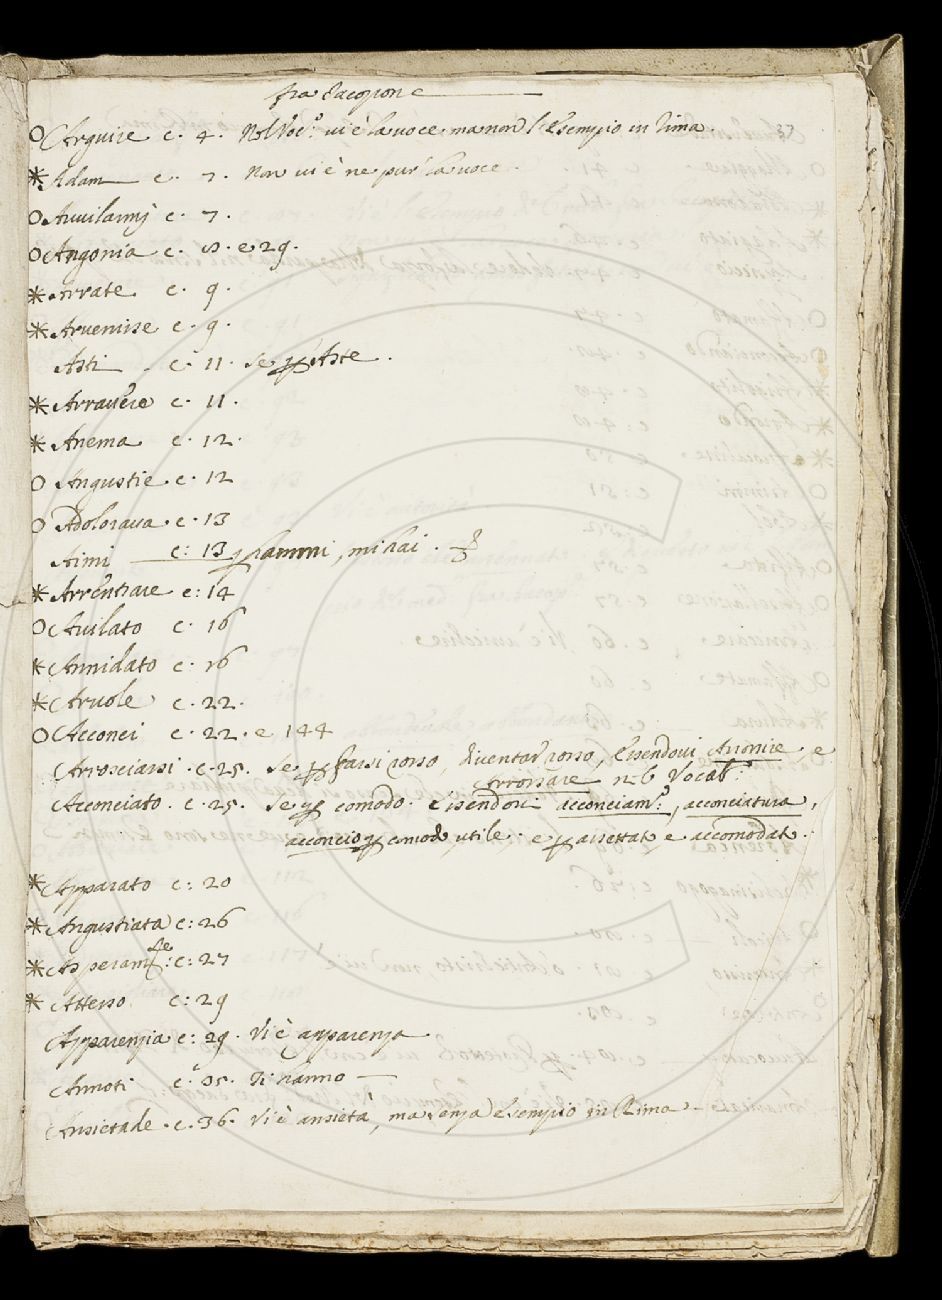 fra Jacopone
37
O Arguire c. 4. Nel Voc.º vi è la voce ma non l'esempio in rima.
* Adam c. 7. Non vi è ne pur la voce.
O Avvilarmj c. 7.
O Angonia c. 8. e 29.
* Arrate c. 9.
* Arvenire c. 9.
Asti c. 11. se p Aste.
* Arravere c. 11.
* Anema c. 12.
O Angustie c. 12
O Adolorava c. 13
Aimi c: 13 p hammi, mi hai.
* Arrentrare c: 14
O Avilato c. 16
* Annidato c. 16
* Arvole c. 22.
O Acconci c. 22. e 144
Arrosciarsi. c. 25. se p farsi rosso, diventar rosso, essendovi Arrossire e
Arrossare nel Vocab.º
Acconciato. c. 25. se p comodo. essendovi acconciam.º, acconciatura,
acconcio p comodo, utile: e p assettat. e accomodat.
* Apparato c: 20
* Angustiata c: 26
* Asperamte: c: 27
* Atterso c: 29
Apparenzia c: 29. Vi è apparenza
Annoti c. 35. Ti hanno
Ansietade. c. 36. Vi è ansietà, ma senza esempio in Rima